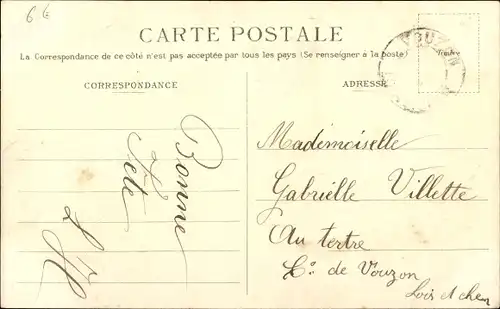 66
CARTE POSTALE
La Correspondance de ce côté n'est pas acceptée par tous les pays (Se renseigner à la poste)
CORRESPONDANCE
ADRESSE
Timbre
VOUZON
Bonne
Fête
Mademoiselle
Gabrielle Villette
Au tertre
Cne de Vouzon
Loir et cher